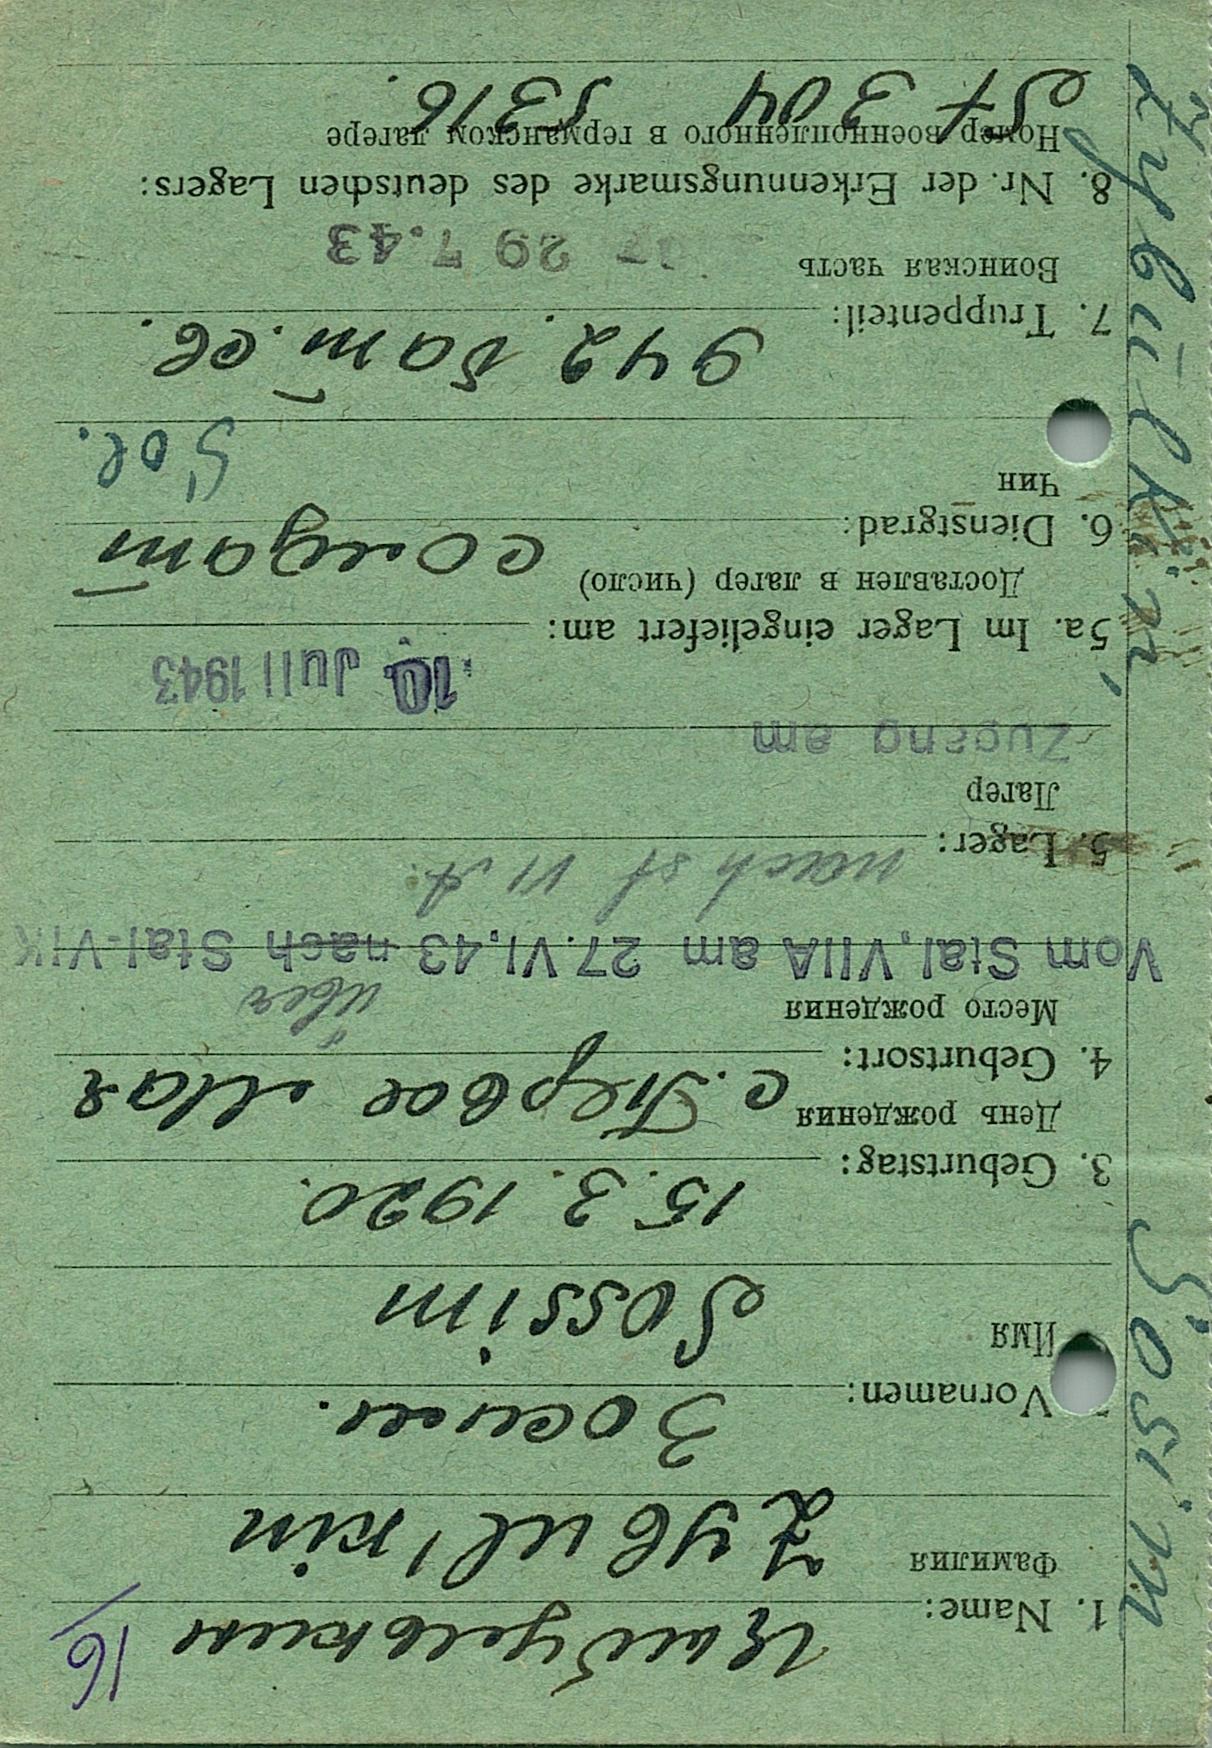 16
1. Name: Цыбулькин
Фамилия Zybul'kin
Vornamen: Зосим.
Имя Sossim
3. Geburtstag: 15.3.1920.
День рождения
4. Geburtsort: с. Первое Мая
Место рождения über
Vom Stal, VIIA am 27.VI.43 nach Stal-VIK
5. Lager: nach St VI A.
Лагер
Zugang am 10. Juli 1943
5a. Im Lager eingeliefert am:
Доставлен в лагер (число)
6. Dienstgrad: солдат
Чин Sol.
7. Truppenteil: 942. бат. св.
Воинская часть
29 7.43
8. Nr. der Erkennungsmarke des deutschen Lagers:
Номер военнопленного в германском лагере
St 304 5316.
Zybulkin, Sosim